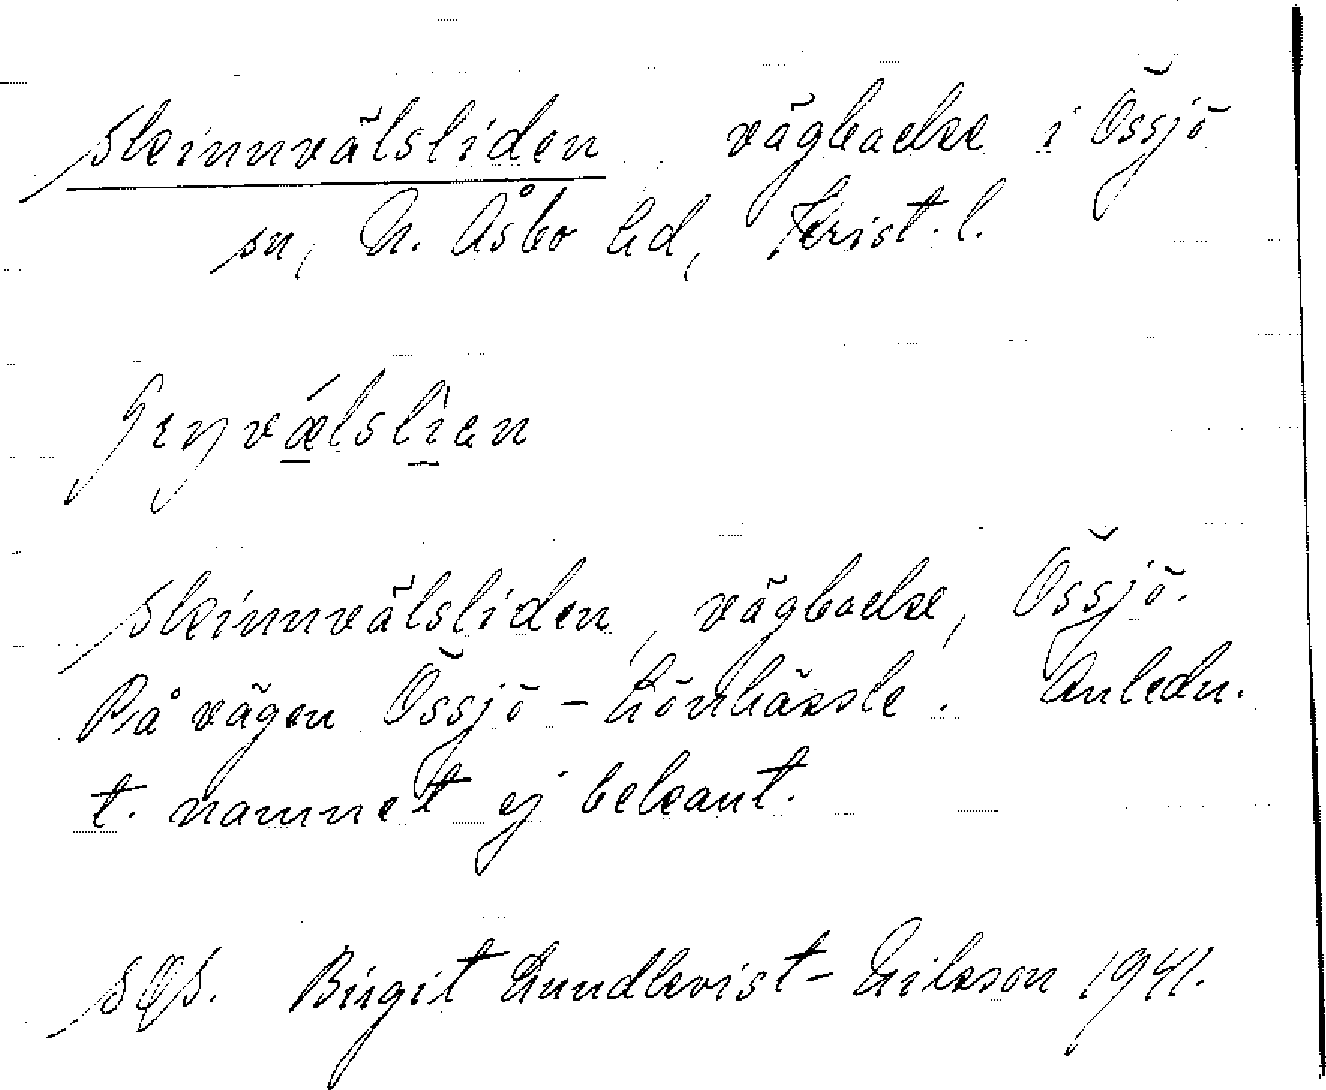 Skinnvälsliden, vägbacke i Össjö
sn, N. Åsbo hd, Krist. l.
Skinnvälsliden, vägbacke, Össjö.
På vägen Össjö - Lönhässle. Anledn.
t. namnet ej bekant.
SOS. Birgit Lundkvist-Nilsson 1941.